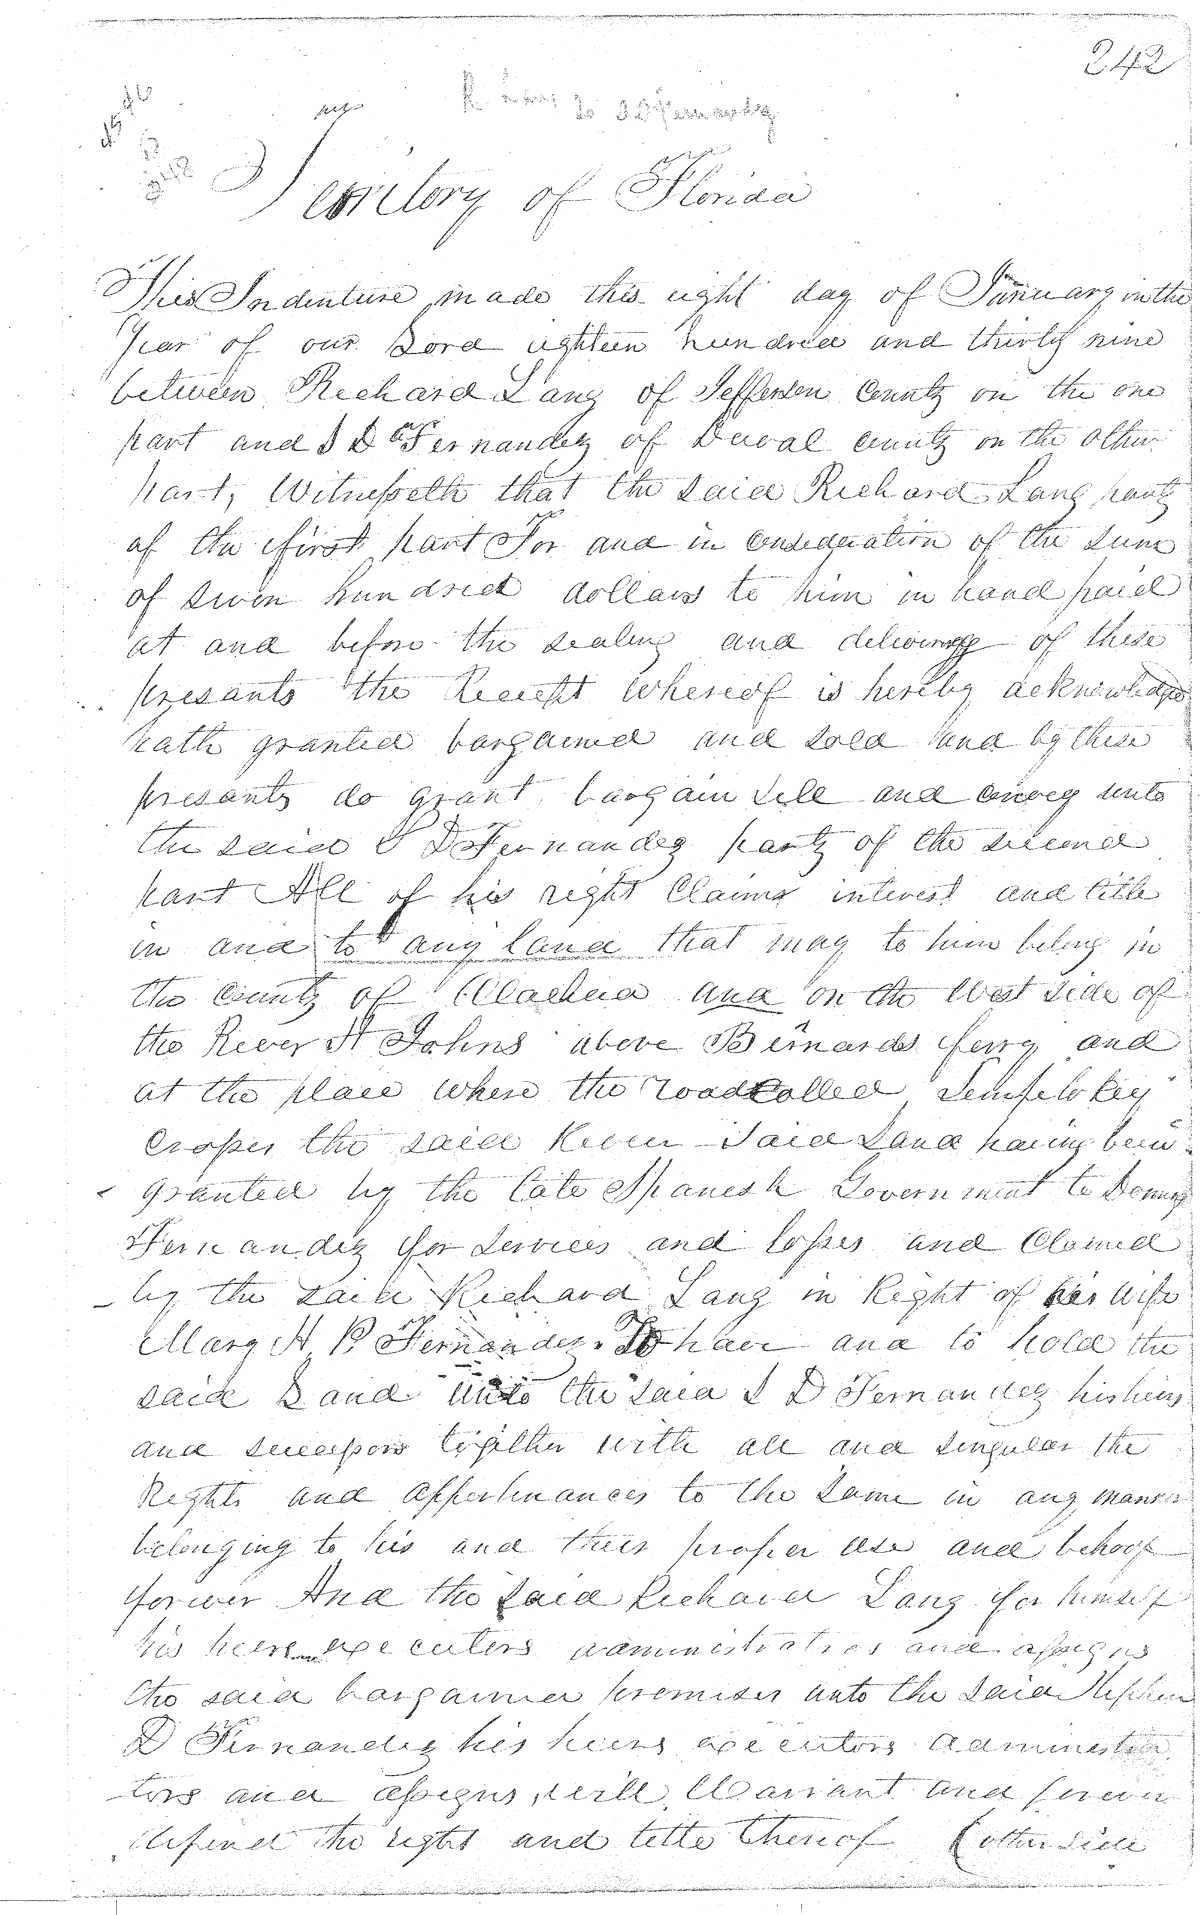 242
to S D Fernandez
Territory of Florida
This Indenture made this eight day of January in the
Year of our Lord eighteen hundred and thirty nine
between Richard Lang of Jefferson County on the one
part and S D Fernandez of Duval county on the other
part, Witnesseth that the said Richard Lang party
of the first part For and in Consideration of the sum
of seven hundred dollars to him in hand paid
at and before the sealing and delivery of these
presants the Receipt whereof is hereby acknowledged
hath granted bargained and sold and by these
presants do grant, bargain sell and convey unto
the said S D Fernandez party of the second
part All of his right Claims interest and title
in and to any land that may to him belong in
the County of Alachua and on the West side of
the River St Johns above Bernards ferry and
at the place where the road called
Crosses the said River Said Land having been
granted by the late Spanish Government to
Fernandez for services and losses and Claimed
by the said Richard Lang in Right of his Wife
Mary A B Fernandez. To have and to hold the
said Land unto the said S D Fernandez his heirs
and successors together with all and singular the
Rights and appertinances to the same in any manner
belonging to his and their proper use and behoof
forever And the said Richard Lang for himself
his heirs executers administrators and assigns
the said bargained premises unto the said Stephen
D Fernandez his heirs executors Administra
tors and assigns, will Warrant and forever
defend the right and title thereof (other side